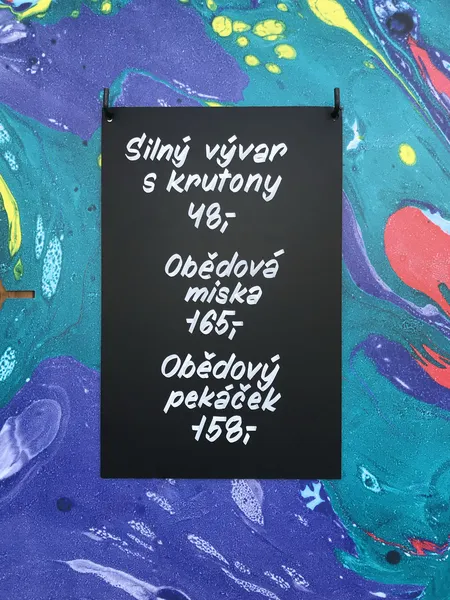 Silný vývar
s krutony
48,-
Obědová
miska
165,-
Obědový
pekáček
158,-